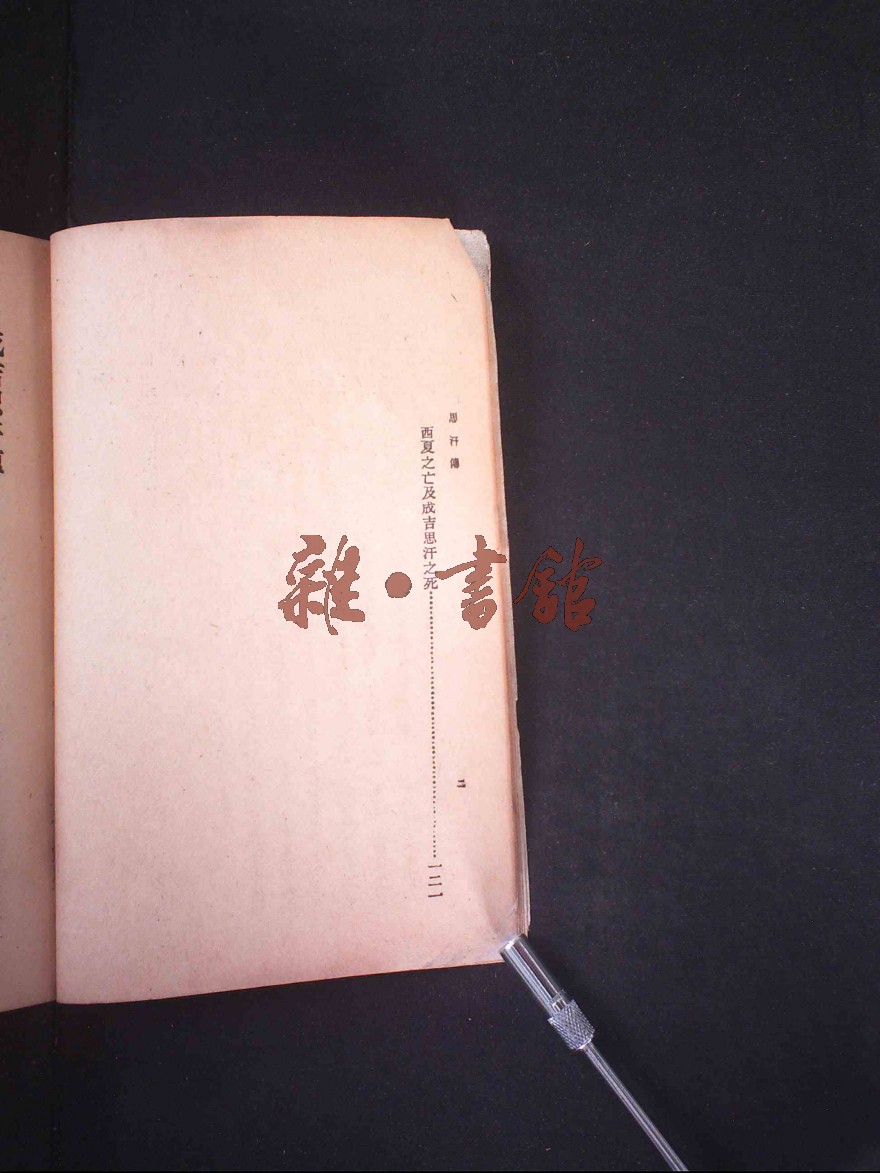 思汗傳
二
西夏之亡及成吉思汗之死……一二一
雜·書館